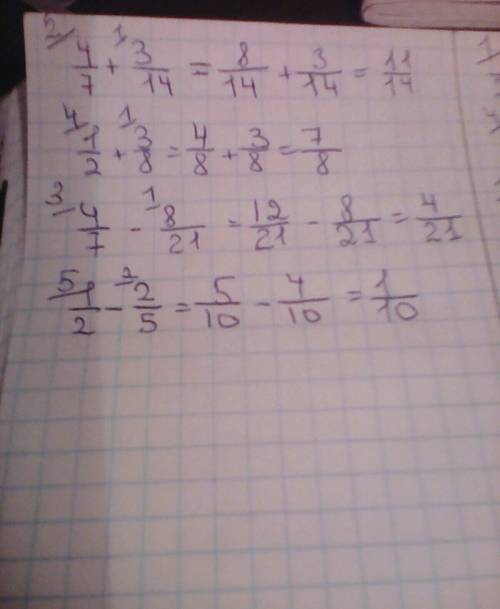 2/ 4/7 + 1/ 3/14 = 8/14 + 3/14 = 11/14
4/ 1/2 + 1/ 3/8 = 4/8 + 3/8 = 7/8
3/ 4/7 - 1/ 8/21 = 12/21 - 8/21 = 4/21
5/ 1/2 - 2/ 2/5 = 5/10 - 4/10 = 1/10